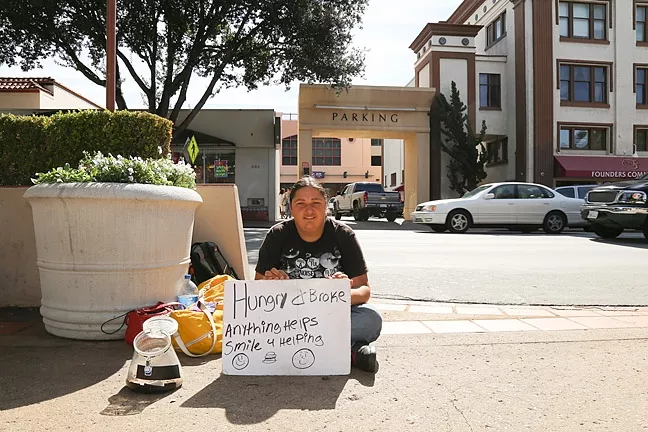 PARKING
FOUNDERS COM
Hungry & Broke
Anything Helps
Smile 4 Helping